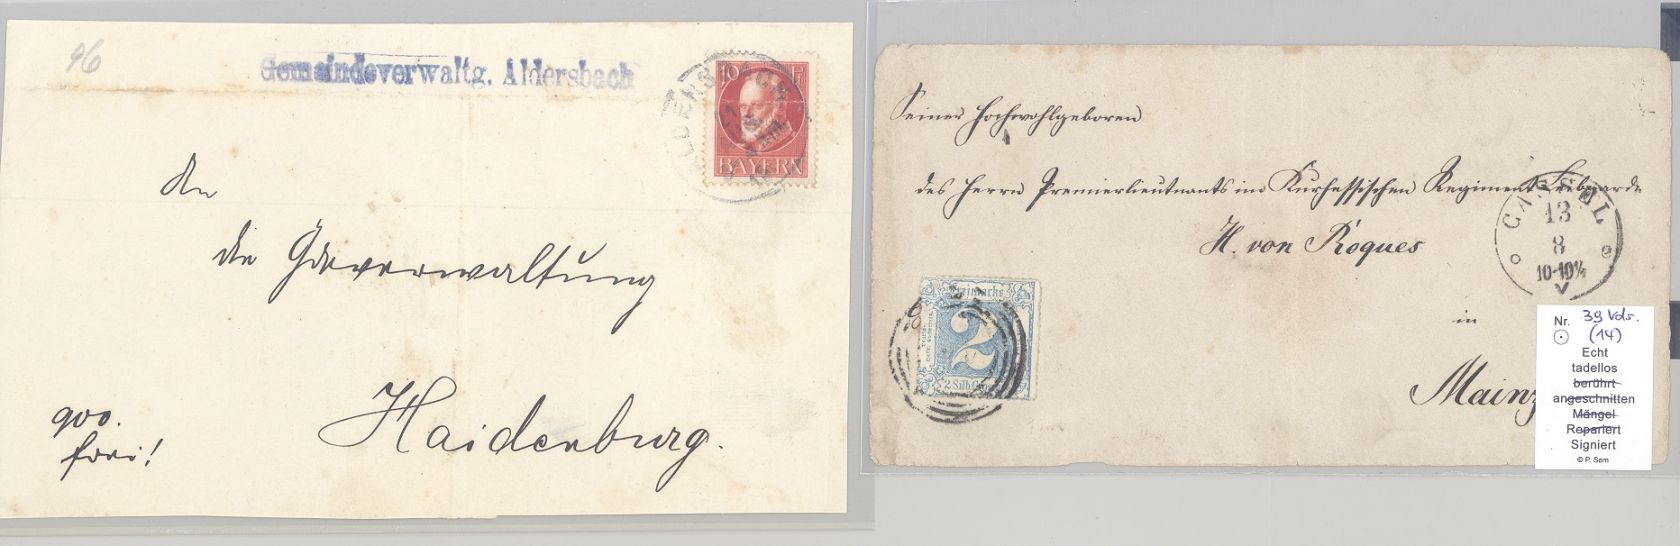 96
Gemeindeverwaltg. Aldersbach
10 Pf
BAYERN
ALDERSBACH
An
die Gdeverwaltung
Haidenburg.
frei!
Seiner Hochwohlgeboren
des Herrn Premierlieutnants im Kurhessischen Regiment
H. von Roques
in
Mainz
CASSEL
13
8
10-10¾
Freimarke
2
2 Silb. Gr
Nr. 39 Vds.
(14)
Echt
tadellos
berührt
angeschnitten
Mängel
Repariert
Signiert
© P. Sem